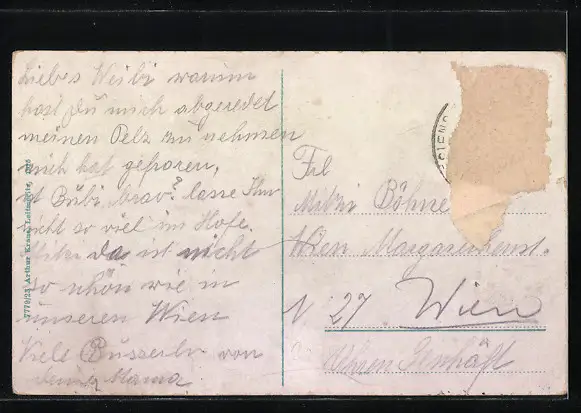 Liebes Weibi warum
hast Du mich abgeredet
meinen Pelz zu nehmen
mich hat gefroren,
ist Bubi brav? lasse Ihn
nicht so viel im Hofe.
Mitzi da ist nicht
so schön wie in
unseren Wien
Viele Busserln von
deiner Mama
7770/25 Arthur Krause, Leitmeritz,
Frl
Mitzi Böhne
Wien
N 27. Wien
Uhren Geschäft